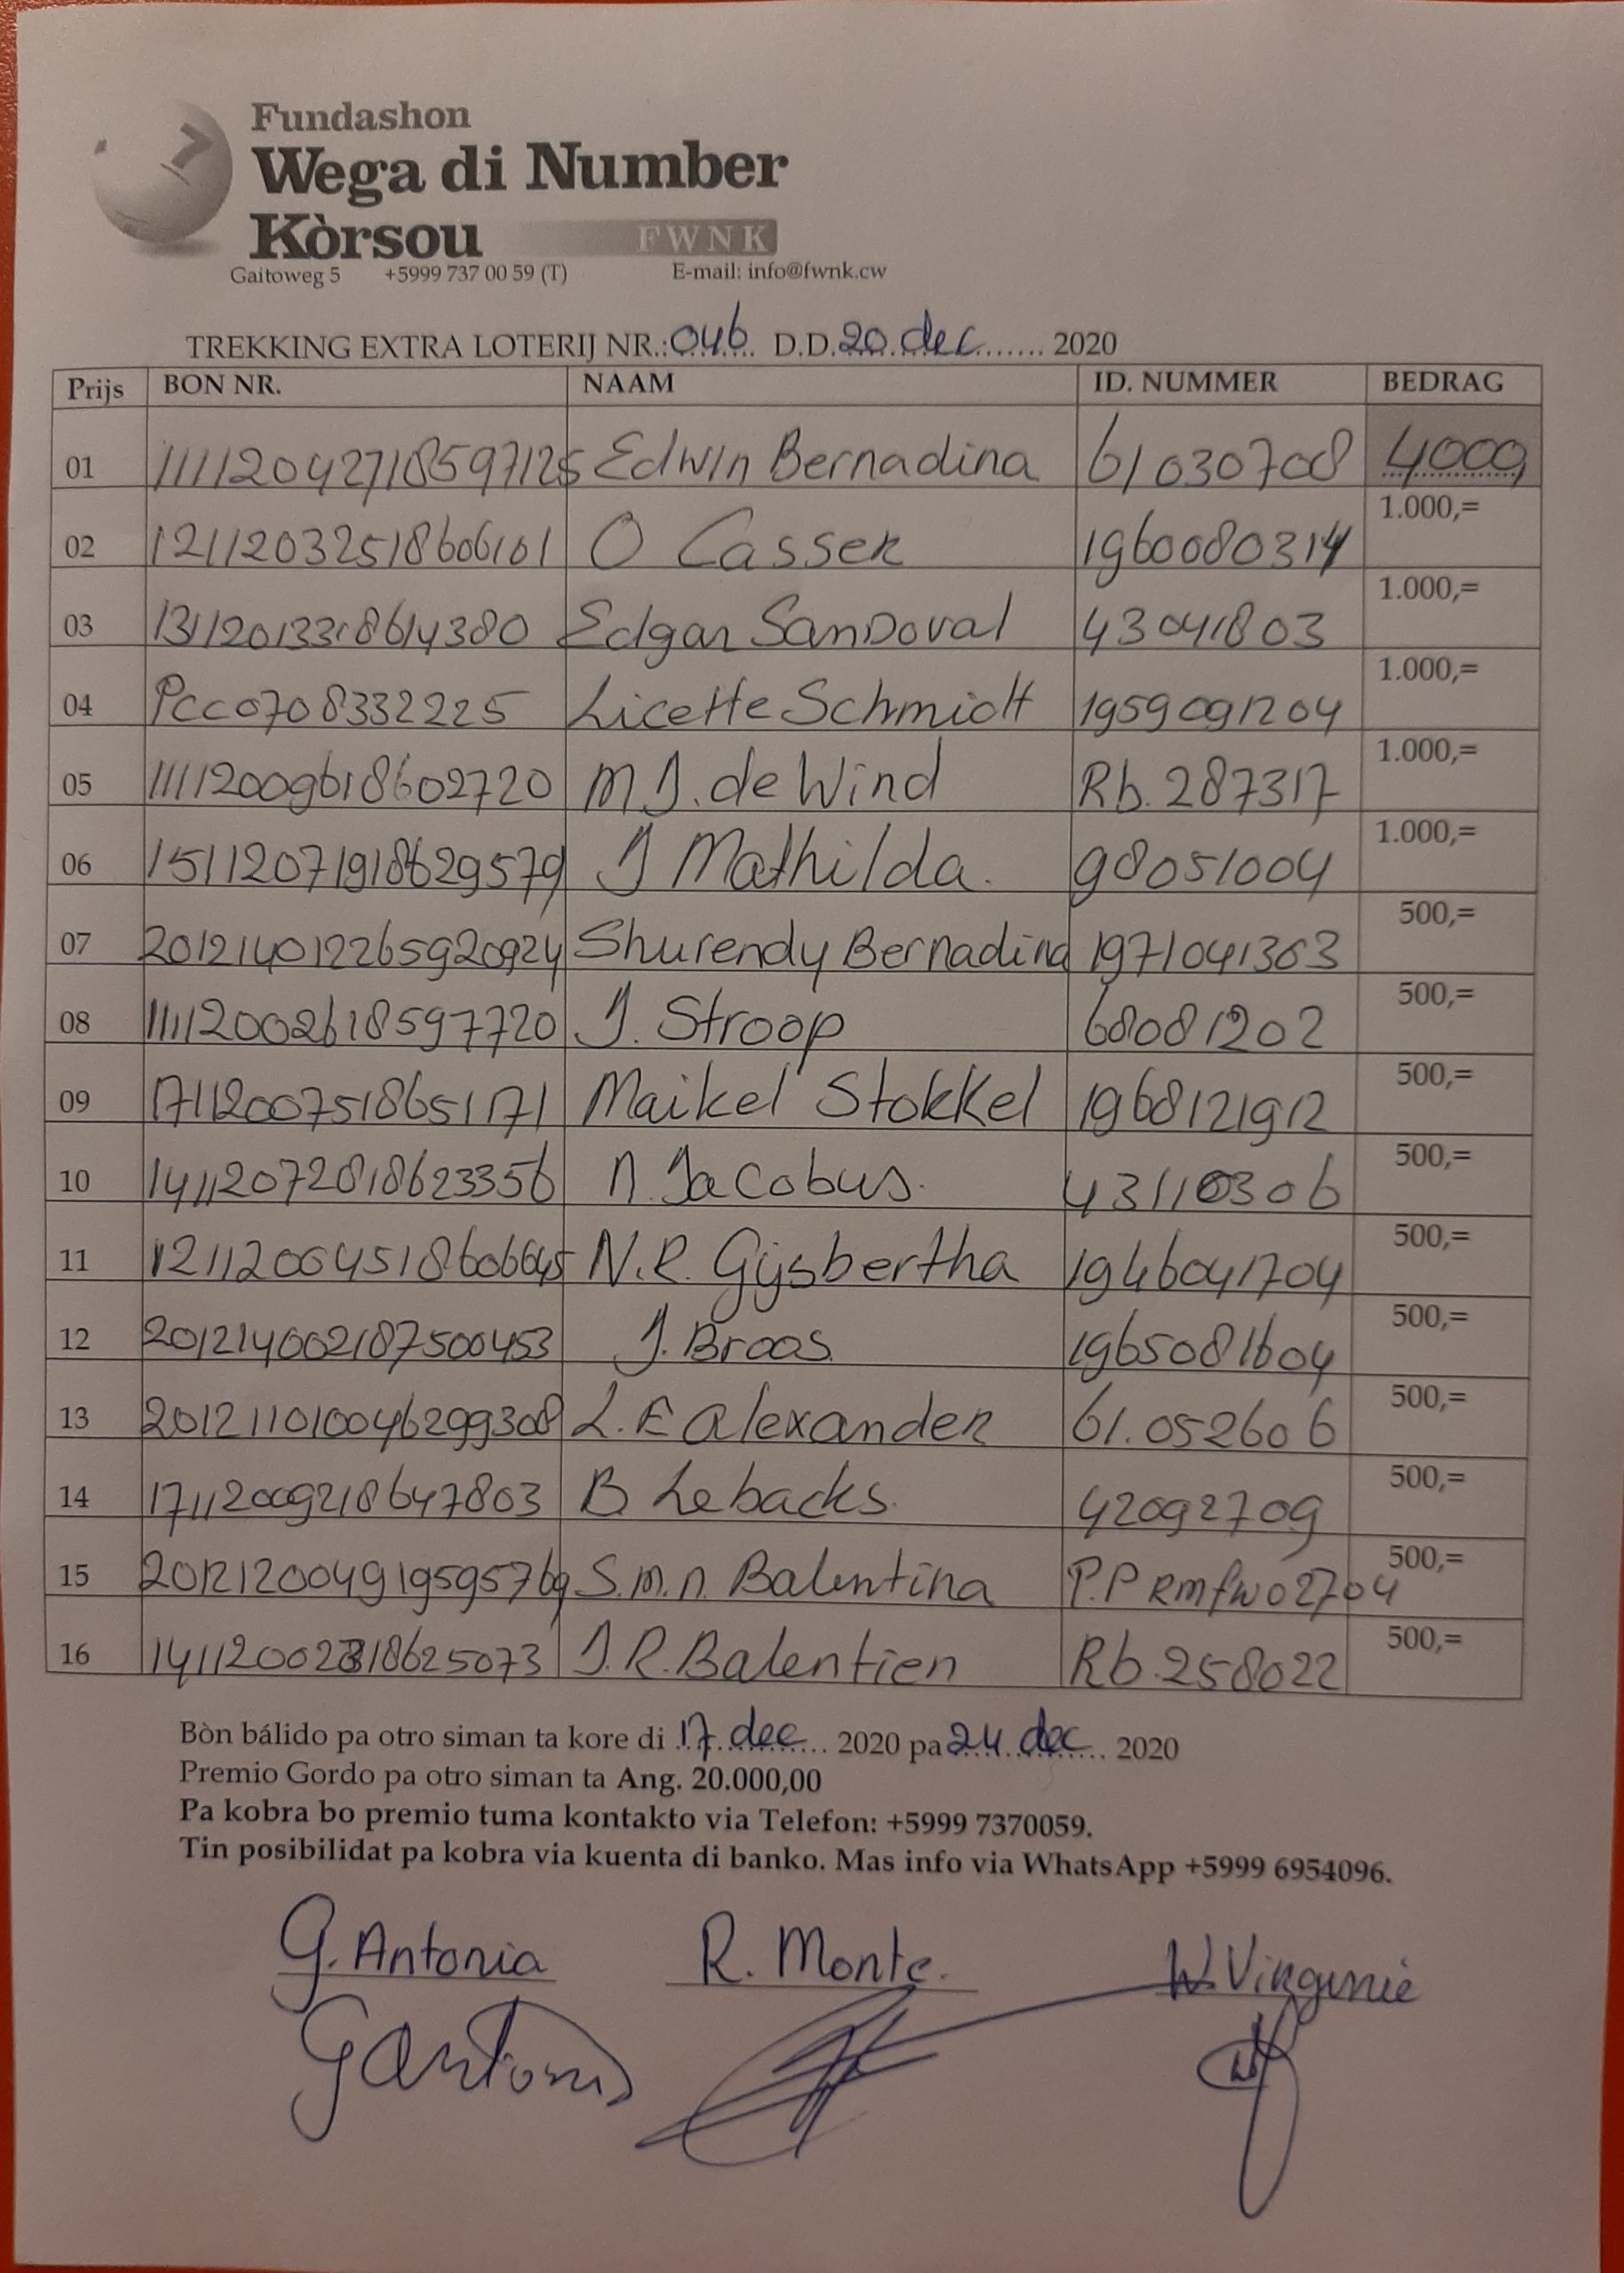 Fundashon
Wega di Number
Kòrsou FWNK
Gaitoweg 5 +5999 737 00 59 (T) E-mail: info@fwnk.cw
TREKKING EXTRA LOTERIJ NR.: 046 D.D. 20 dec 2020
Prijs BON NR. NAAM ID. NUMMER BEDRAG
01 11112042718597125 Edwin Bernadina 61030708 4000,
02 12112032518606101 O Casser 1960080314 1.000,=
03 13112013318614380 Edgar Sandoval 43041803 1.000,=
04 Pcc0708332225 Licette Schmidt 1959091204 1.000,=
05 11112009618602720 M J. de Wind Rb. 287317 1.000,=
06 15112071918629579 J Mathilda. 98051004 1.000,=
07 201214012265920924 Shurendy Bernadina 1971041303 500,=
08 11112002618597720 J. Stroop 68081202 500,=
09 17112007518651171 Maikel Stokkel 1968121912 500,=
10 14112072818623356 N. Jacobus. 43110306 500,=
11 12112004518606645 N.R. Gijsbertha 1946041704 500,=
12 201214002187500453 J. Broos 1965081604 500,=
13 201211010046299308 L. E Alexander 61.052606 500,=
14 17112009218647803 B Lebacks. 42092709 500,=
15 201212004919595769 S.M.N. Balentina P.P RMfW02704 500,=
16 14112002318625073 J. R. Balentien Rb. 258022 500,=
Bòn bálido pa otro siman ta kore di 17 dec 2020 pa 24 dec 2020
Premio Gordo pa otro siman ta Ang. 20.000,00
Pa kobra bo premio tuma kontakto via Telefon: +5999 7370059.
Tin posibilidat pa kobra via kuenta di banko. Mas info via WhatsApp +5999 6954096.
G. Antonia R. Monte. W. Virginie